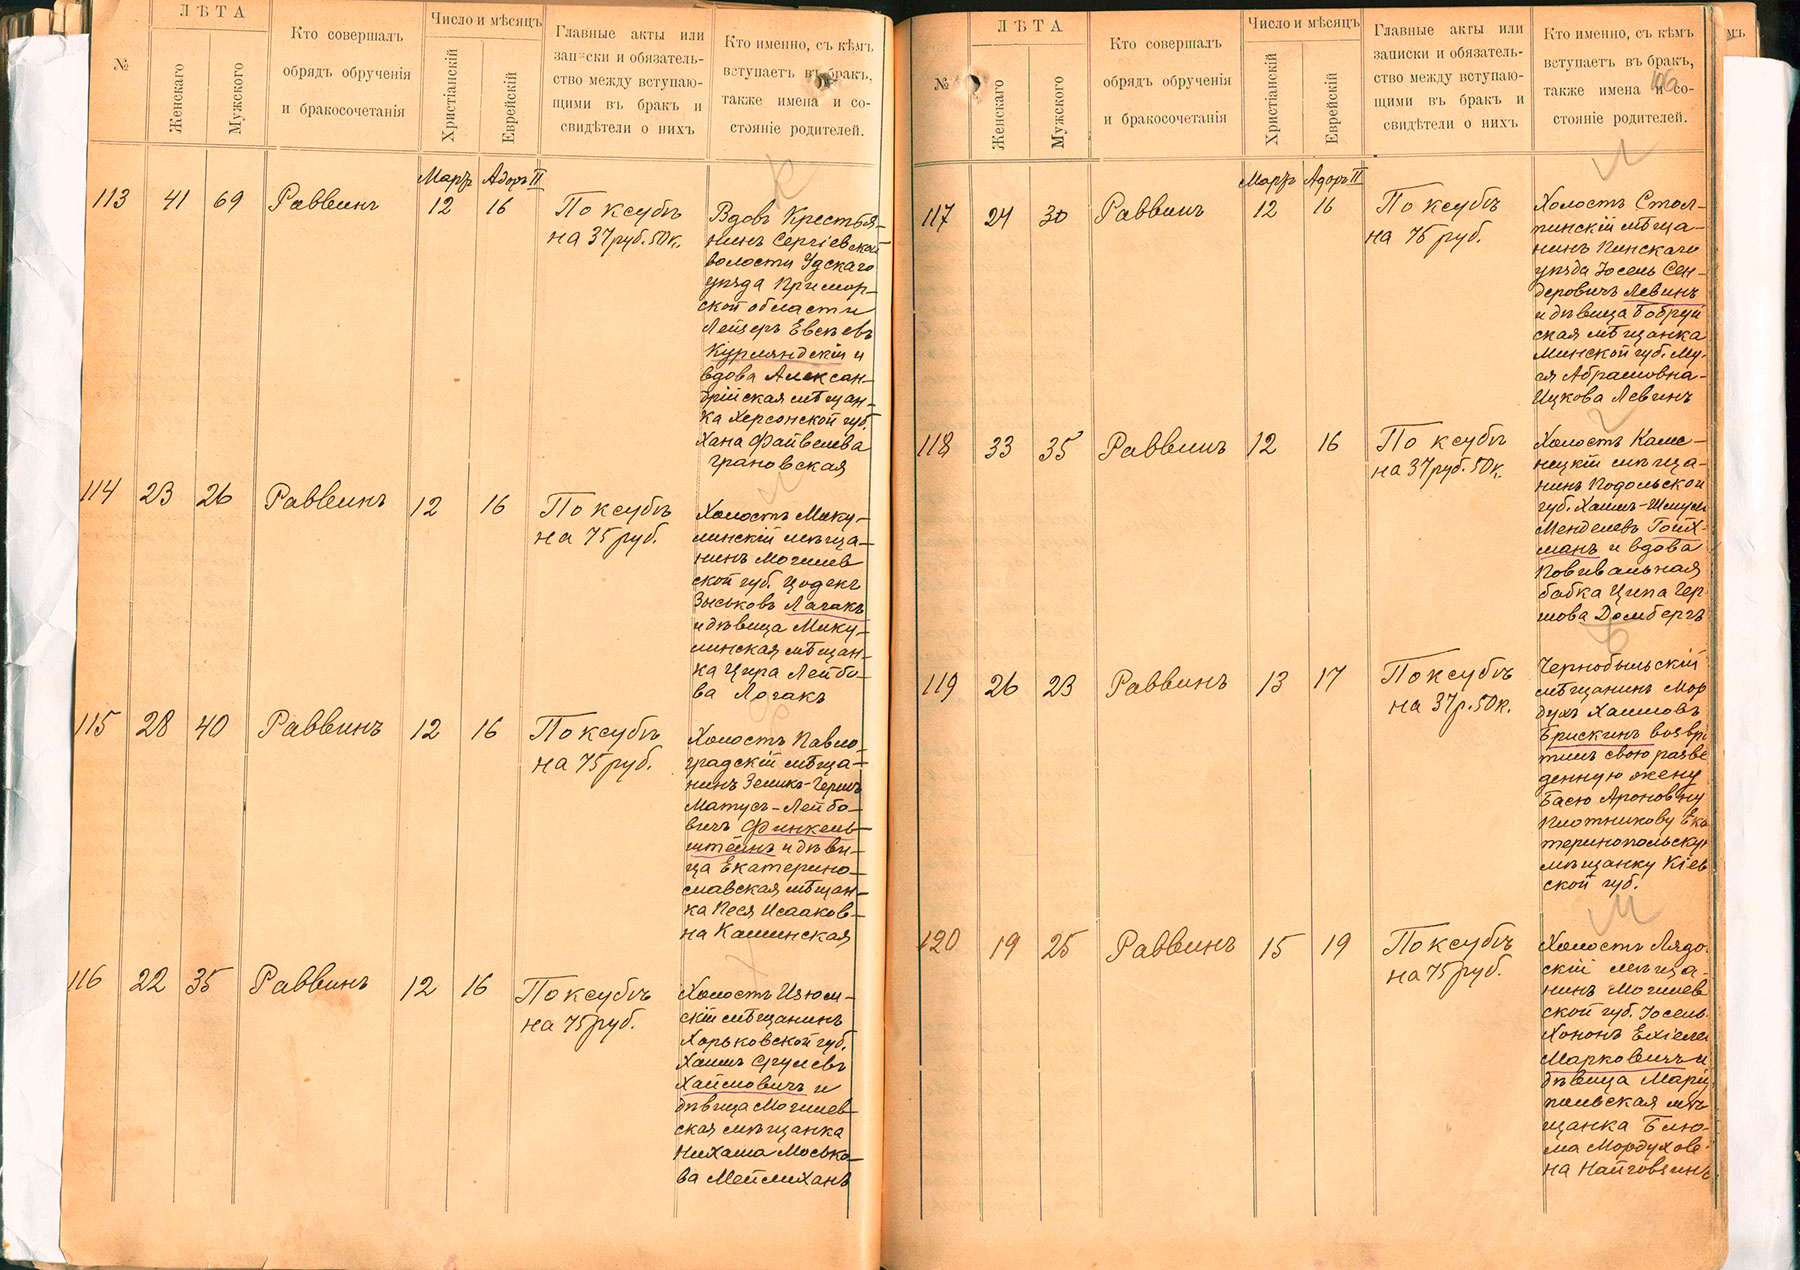 №
ЛѢТА
Женскаго
Мужского
Кто совершалъ
обрядъ обрученія
и бракосочетанія
Число и мѣсяцъ
Христіанскій
Еврейскій
Главные акты или
записки и обязатель-
ство между вступаю-
щими въ бракъ и
свидѣтели о нихъ
Кто именно, съ кѣмъ
вступаетъ въ бракъ,
также имена и со-
стояніе родителей.
Мартъ Адоръ II
113 41 69 Раввинъ 12 16 По ксубѣ
на 37 руб. 50 к.
Вдовъ Крестья-
нинъ Сергіевской
волости Удскаго
уѣзда Примор-
ской области
Лейзеръ Евсѣевъ
Курляндскій и
вдова Алексан-
дрійская мѣщан-
ка Херсонской губ.
Хана Файвелева
Грановская
114 23 26 Раввинъ 12 16 По ксубѣ
на 75 руб.
Холостъ Мику-
линскій мѣща-
нинъ Могилев
ской губ. Цодекъ
Зыськовъ Логакъ
и дѣвица Мику-
линская мѣщан-
ка Цира Лейбо-
ва Логакъ
115 28 40 Раввинъ 12 16 По ксубѣ
на 75 руб.
Холостъ Павло-
градскій мѣща-
нинъ Зеликъ-Гершъ
Матусъ-Лейбо-
вичъ Финкель-
штейнъ и дѣви-
ца Екатерино-
славская мѣщан-
ка Песя Исааков-
на Калинская
116 22 35 Раввинъ 12 16 По ксубѣ
на 75 руб.
Холостъ Изюм-
скій мѣщанинъ
Харьковской губ.
Хаимъ Срулевъ
Хаймовичъ и
дѣвица Могилев-
ская мѣщанка
Нихама Мошко-
ва Меймиханъ
№
ЛѢТА
Женскаго
Мужского
Кто совершалъ
обрядъ обрученія
и бракосочетанія
Число и мѣсяцъ
Христіанскій
Еврейскій
Главные акты или
записки и обязатель-
ство между вступаю-
щими въ бракъ и
свидѣтели о нихъ
Кто именно, съ кѣмъ
вступаетъ въ бракъ,
также имена и со-
стояніе родителей.
106
Мартъ Адоръ II
117 24 30 Раввинъ 12 16 По ксубѣ
на 75 руб.
Холостъ Стол-
пинскій мѣща-
нинъ Пинскаго
уѣзда Іосель Сен-
деровичъ Левинъ
и дѣвица Бобруй
ская мѣщанка
Минской губ. Му-
ся Абрамовна-
Ицкова Левинъ
118 33 35 Раввинъ 12 16 По ксубѣ
на 37 руб. 50 к.
Холостъ Каме-
нецкій мѣща-
нинъ Подольской
губ. Хаимъ-Шмуль
Менделевъ Гойх-
манъ и вдова
Повивальная
бабка Ципа Гер
шова Домбергъ
119 26 23 Раввинъ 13 17 По ксубѣ
на 37 р. 50 к.
Чернобыльскій
мѣщанинъ Мор
духъ Хаимовъ
Ерискинъ возвра
тилъ свою разве
денную жену
Басю Ароновну
Плотникову Ека
теринопольскую
мѣщанку Кіев
ской губ.
120 19 25 Раввинъ 15 19 По ксубѣ
на 75 руб.
Холостъ Лядо-
скій мѣща-
нинъ Могилев
ской губ. Іосель
Хононъ Ехіеле
Марковичъ и
дѣвица Маріу
польская мѣ
щанка Блю-
ма Мордухов-
на Найговзинъ